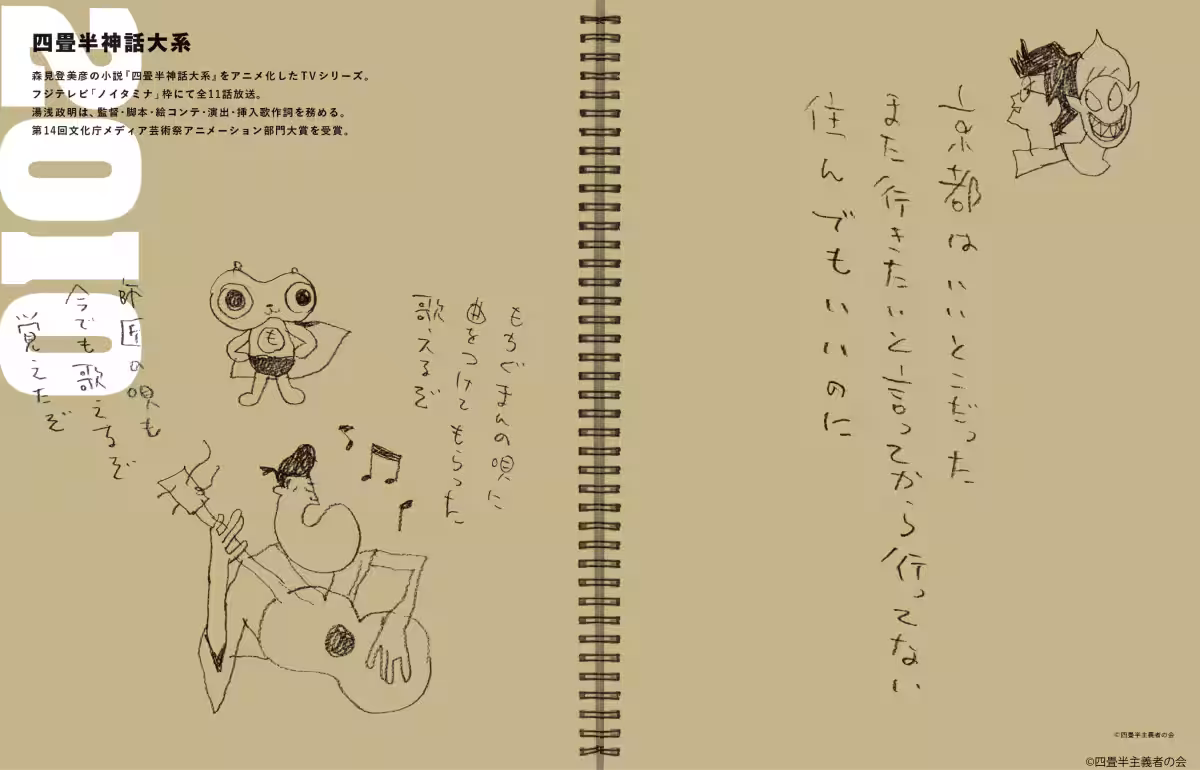 2010
四畳半神話大系
森見登美彦の小説『四畳半神話大系』をアニメ化したTVシリーズ。
フジテレビ「ノイタミナ」枠にて全11話放送。
湯浅政明は、監督・脚本・絵コンテ・演出・挿入歌作詞を務める。
第14回文化庁メディア芸術祭アニメーション部門大賞を受賞。
も
もちぐまんの唄に
曲をつけてもらった
歌えるぞ
師匠の唄も
今でも歌えるぞ
覚えたぞ
京都はいいとこだった
また行きたいと言ってから行ってない
住んでもいいのに
©四畳半主義者の会
©四畳半主義者の会